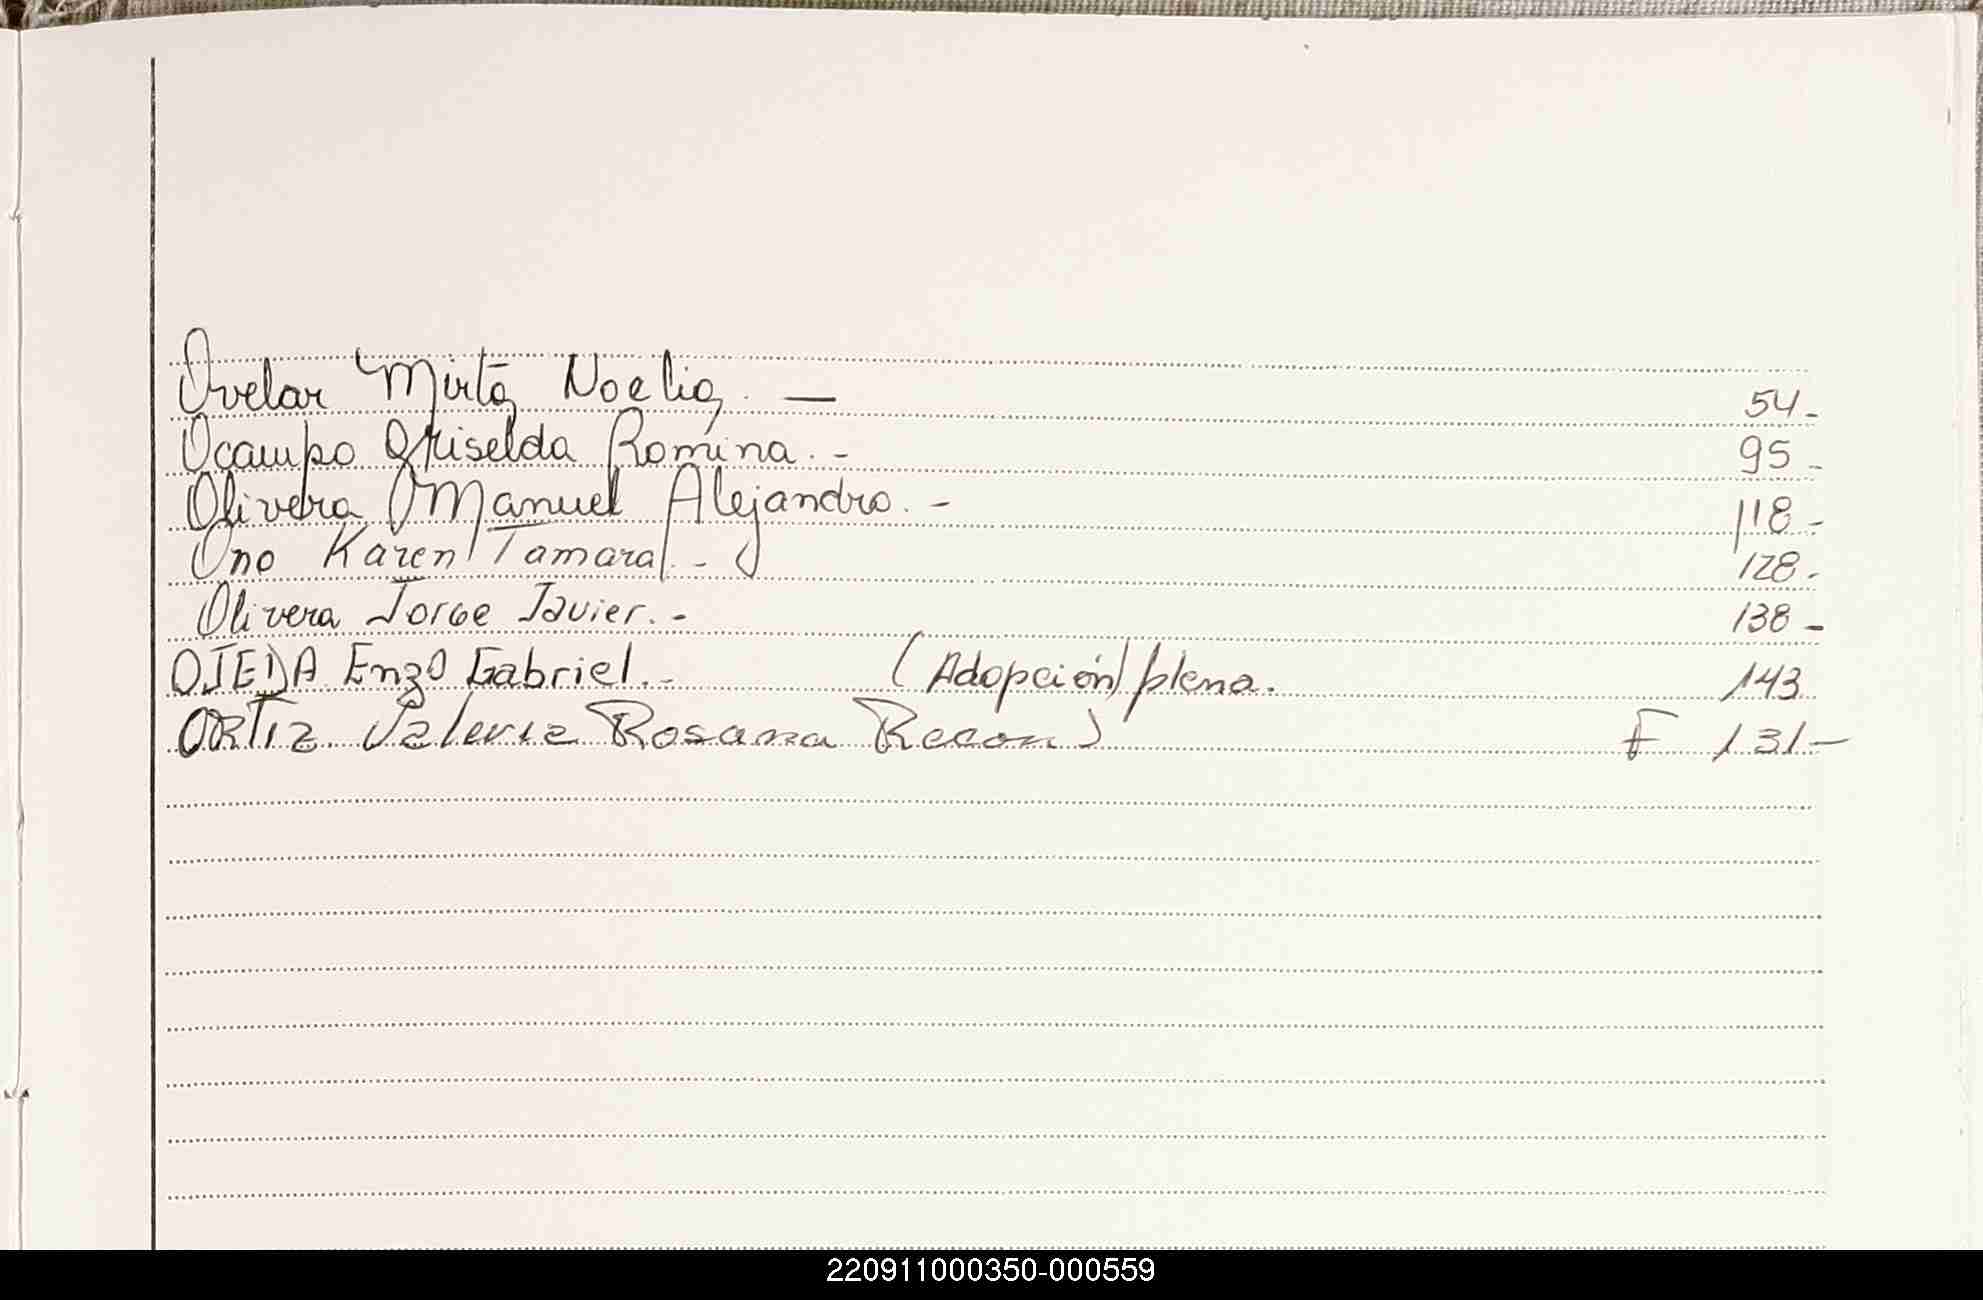 Ovelar Mirta Noelia. — 54-
Ocampo Griselda Romina. - 95-
Olivera Manuel Alejandro. - 118-
Ono Karen Tamara. - 128-
Olivera Jorge Javier. - 138-
OJEDA Enzo Gabriel. - (Adopción) plena. 143
ORTIZ Valeria Rosana Recon) F 131-
220911000350-000559